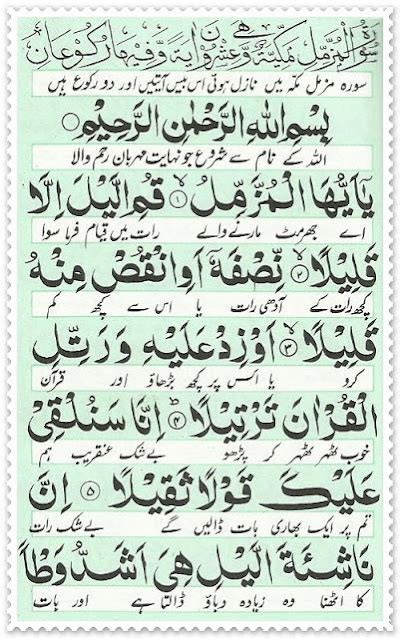 سورة المزمل مكية وهي عشرون اية وفيها ركوعان
سورہ مزمل مکہ میں نازل ہوئی اس میں بیس آیتیں اور دو رکوع ہیں
بِسْمِ اللهِ الرَّحْمٰنِ الرَّحِيْمِ
اللہ کے نام سے شروع جو نہایت مہربان رحم والا
يٰٓاَيُّهَا الْمُزَّمِّلُ ۙ﴿۱﴾ قُمِ الَّيْلَ اِلَّا
اے جھرمٹ مارنے والے رات میں قیام فرما سوا
قَلِيْلًا ۙ﴿۲﴾ نِّصْفَهٗٓ اَوِ انْقُصْ مِنْهُ
کچھ رات کے آدھی رات یا اس سے کچھ کم
قَلِيْلًا ۙ﴿۳﴾ اَوْ زِدْ عَلَيْهِ وَ رَتِّلِ
کرو یا اس پر کچھ بڑھاؤ اور قرآن
الْقُرْاٰنَ تَرْتِيْلًا ؕ﴿۴﴾ اِنَّا سَنُلْقِيْ
خوب ٹھہر ٹھہر کر پڑھو بے شک عنقریب ہم
عَلَيْكَ قَوْلًا ثَقِيْلًا ﴿۵﴾ اِنَّ
تم پر ایک بھاری بات ڈالیں گے بے شک رات
نَاشِئَةَ الَّيْلِ هِيَ اَشَدُّ وَطْاً
کا اٹھنا وہ زیادہ دباؤ ڈالتا ہے اور بات